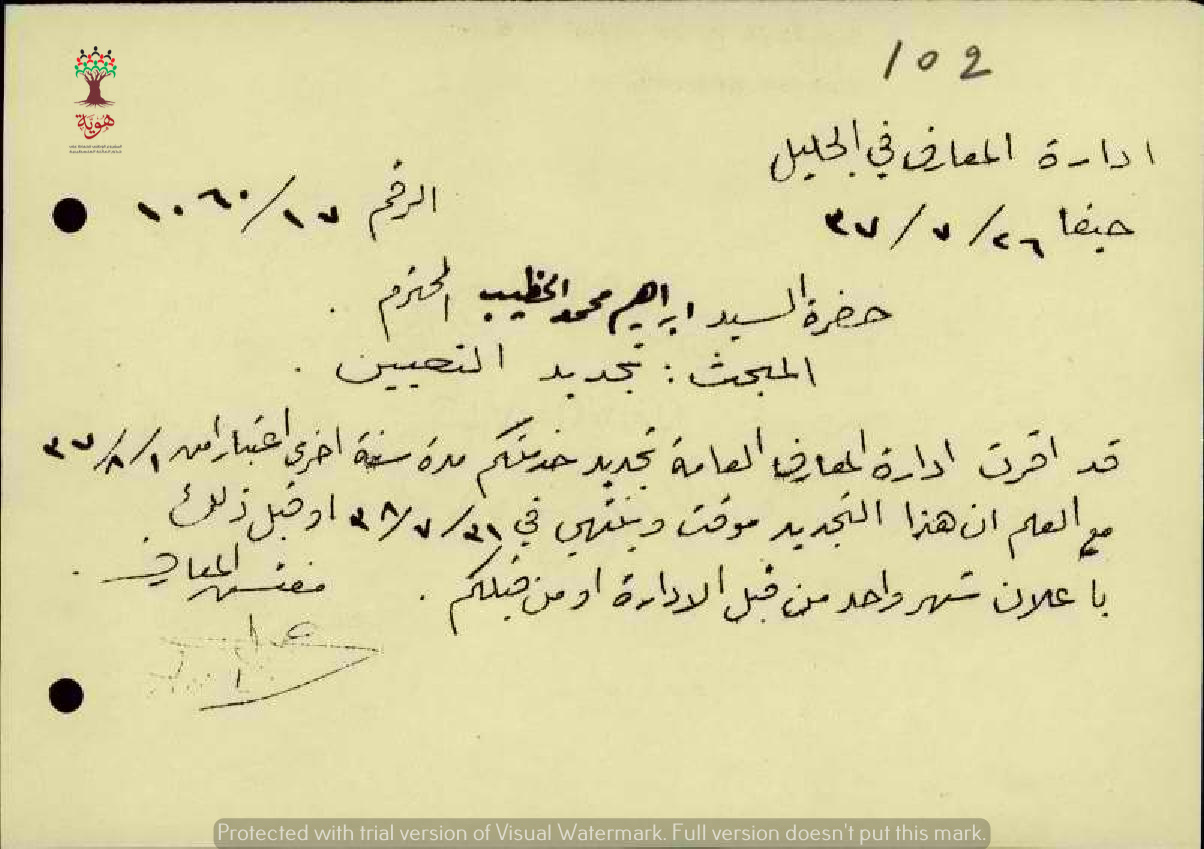 102
ادارة المعارف في الجليل
حيفا ٢٦/٧/٣٧
الرقم ١٧/١٠٦٠
حضرة السيد ابراهيم محمد الخطيب المحترم .
المبحث : تجديد التعيين .
قد اقرت ادارة المعارف العامة تجديد خدمتكم مدة سنة اخرى اعتبارا من ١/٨/٣٧
مع العلم ان هذا التجديد موقت وينتهي في ٣١/٧/٣٨ او قبل ذلك .
باعلان شهر واحد من قبل الادارة او من قبلكم .
مفتش المعارف .
هوية
Protected with trial version of Visual Watermark. Full version doesn't put this mark.